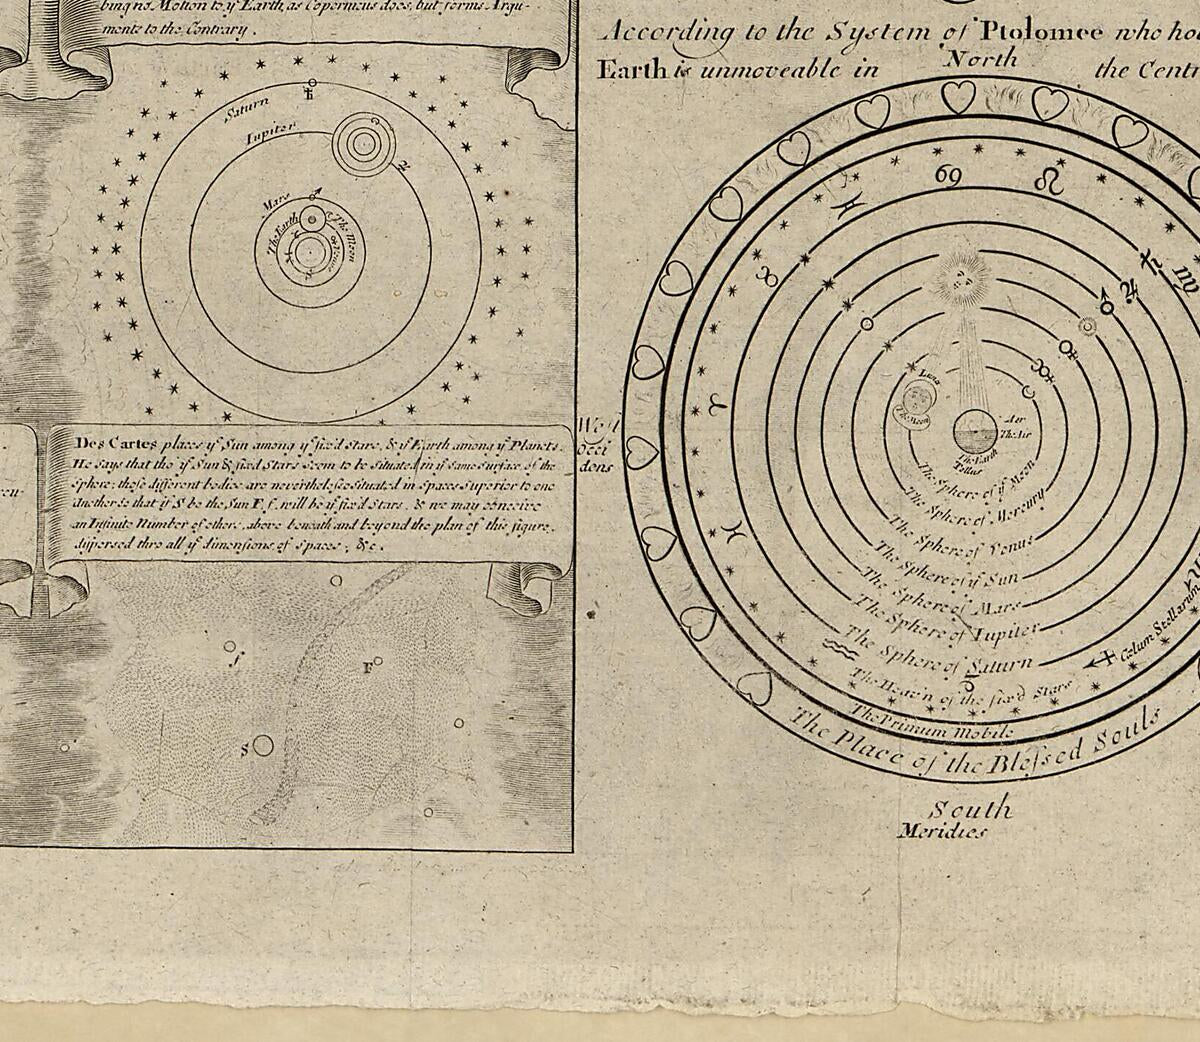 bing no Motion to yͤ Earth, as Copernicus does, but forms Argu-
ments to the Contrary.
Saturn
Iupiter
Mars
The Earth
The Moon
Venus
Des Cartes places yͤ Sun among yͤ fix'd stars, & yͤ Earth among yͤ Planets.
He says that tho' yͤ Sun & fixed Stars seem to be situated in yͤ same surface of the
Sphere; those different bodies are nevertheless situated in spaces superior to one
another so that if S be the Sun F. f. will be yͤ fix'd stars, & we may conceive
an Infinite Number of others above beneath and beyond the plan of this figure,
dispersed thro all yͤ dimensions of spaces; &c.
f
F
S
According to the System of Ptolomee who ho
Earth is unmoveable in
North
the Centr
West
Occi
dens
Luna
The Moon
Aer
The Air
The Earth
Tellus
The Sphere of yͤ Moon
The Sphere of Mercury
The Sphere of Venus
The Sphere of yͤ Sun
The Sphere of Mars
The Sphere of Iupiter
The Sphere of Saturn
The Heav'n of the fix'd Stars
Cœlum Stellarum
The Primum Mobile
The Place of the Blessed Souls
South
Meridies